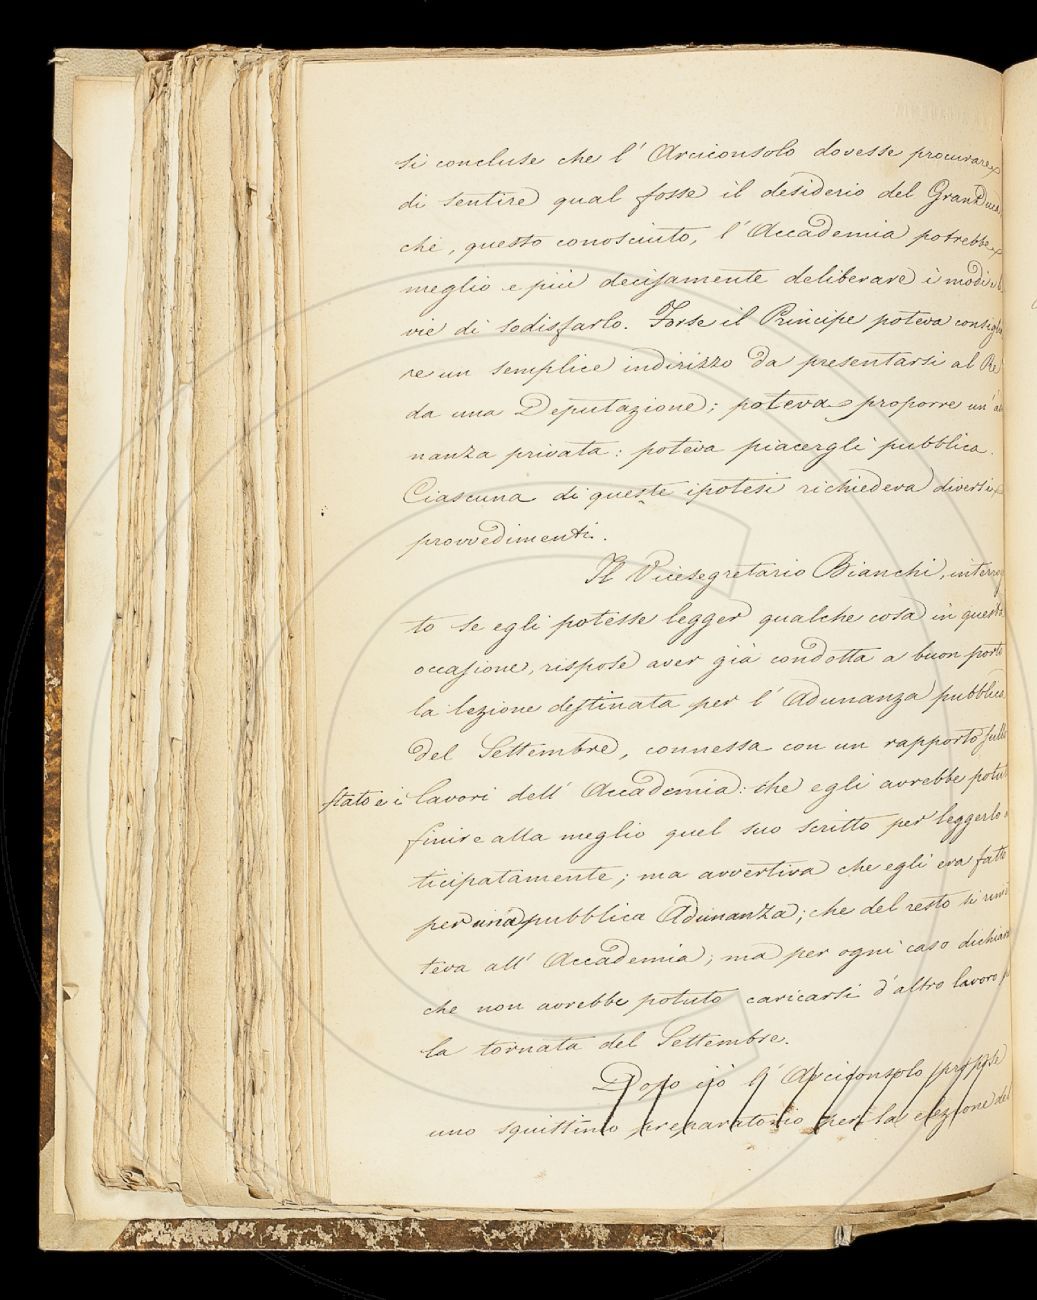 si concluse che l' Arciconsolo dovesse procurare
di sentire qual fosse il desiderio del GranDuca,
chè, questo conosciuto, l' Accademia potrebbe
meglio e più decisamente deliberare i modi e le
vie di sodisfarlo. Forse il Principe poteva consiglia
re un semplice indirizzo da presentarsi al Re
da una Deputazione; poteva proporre un' adu
nanza privata: poteva piacergli pubblica.
Ciascuna di queste ipotesi richiedeva diversi
provvedimenti.
Il Vicesegretario Bianchi, interroga
to se egli potesse legger qualche cosa in questa
occasione, rispose aver già condotta a buon porto
la lezione destinata per l' Adunanza pubblica
del Settembre, connessa con un rapporto sullo
stato e i lavori dell' Accademia: che egli avrebbe potuto
finire alla meglio quel suo scritto per leggerlo an
ticipatamente; ma avvertiva che egli era fatto
per una pubblica Adunanza; che del resto si rimet
teva all' Accademia; ma per ogni caso dichiarava
che non avrebbe potuto caricarsi d' altro lavoro per
la tornata del Settembre.
Dopo ciò l' Arciconsolo propose
uno squittinio preparatorio per la elezione del